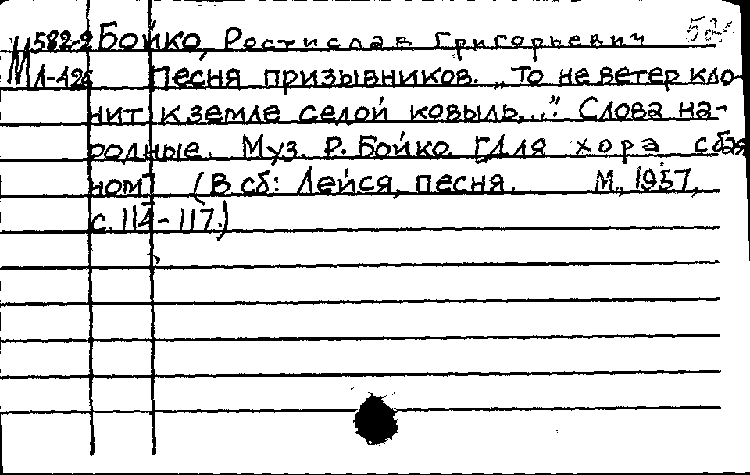 М 582-2 Бойко, Ростислав Григорьевич 52
Л-426 Песня призывников. „То не ветер кло-
нит к земле седой ковыль..." Слова на-
родные. Муз. Р. Бойко [Для хора с бая
ном] (В сб: Лейся, песня. М., 1957,
с. 114-117.)